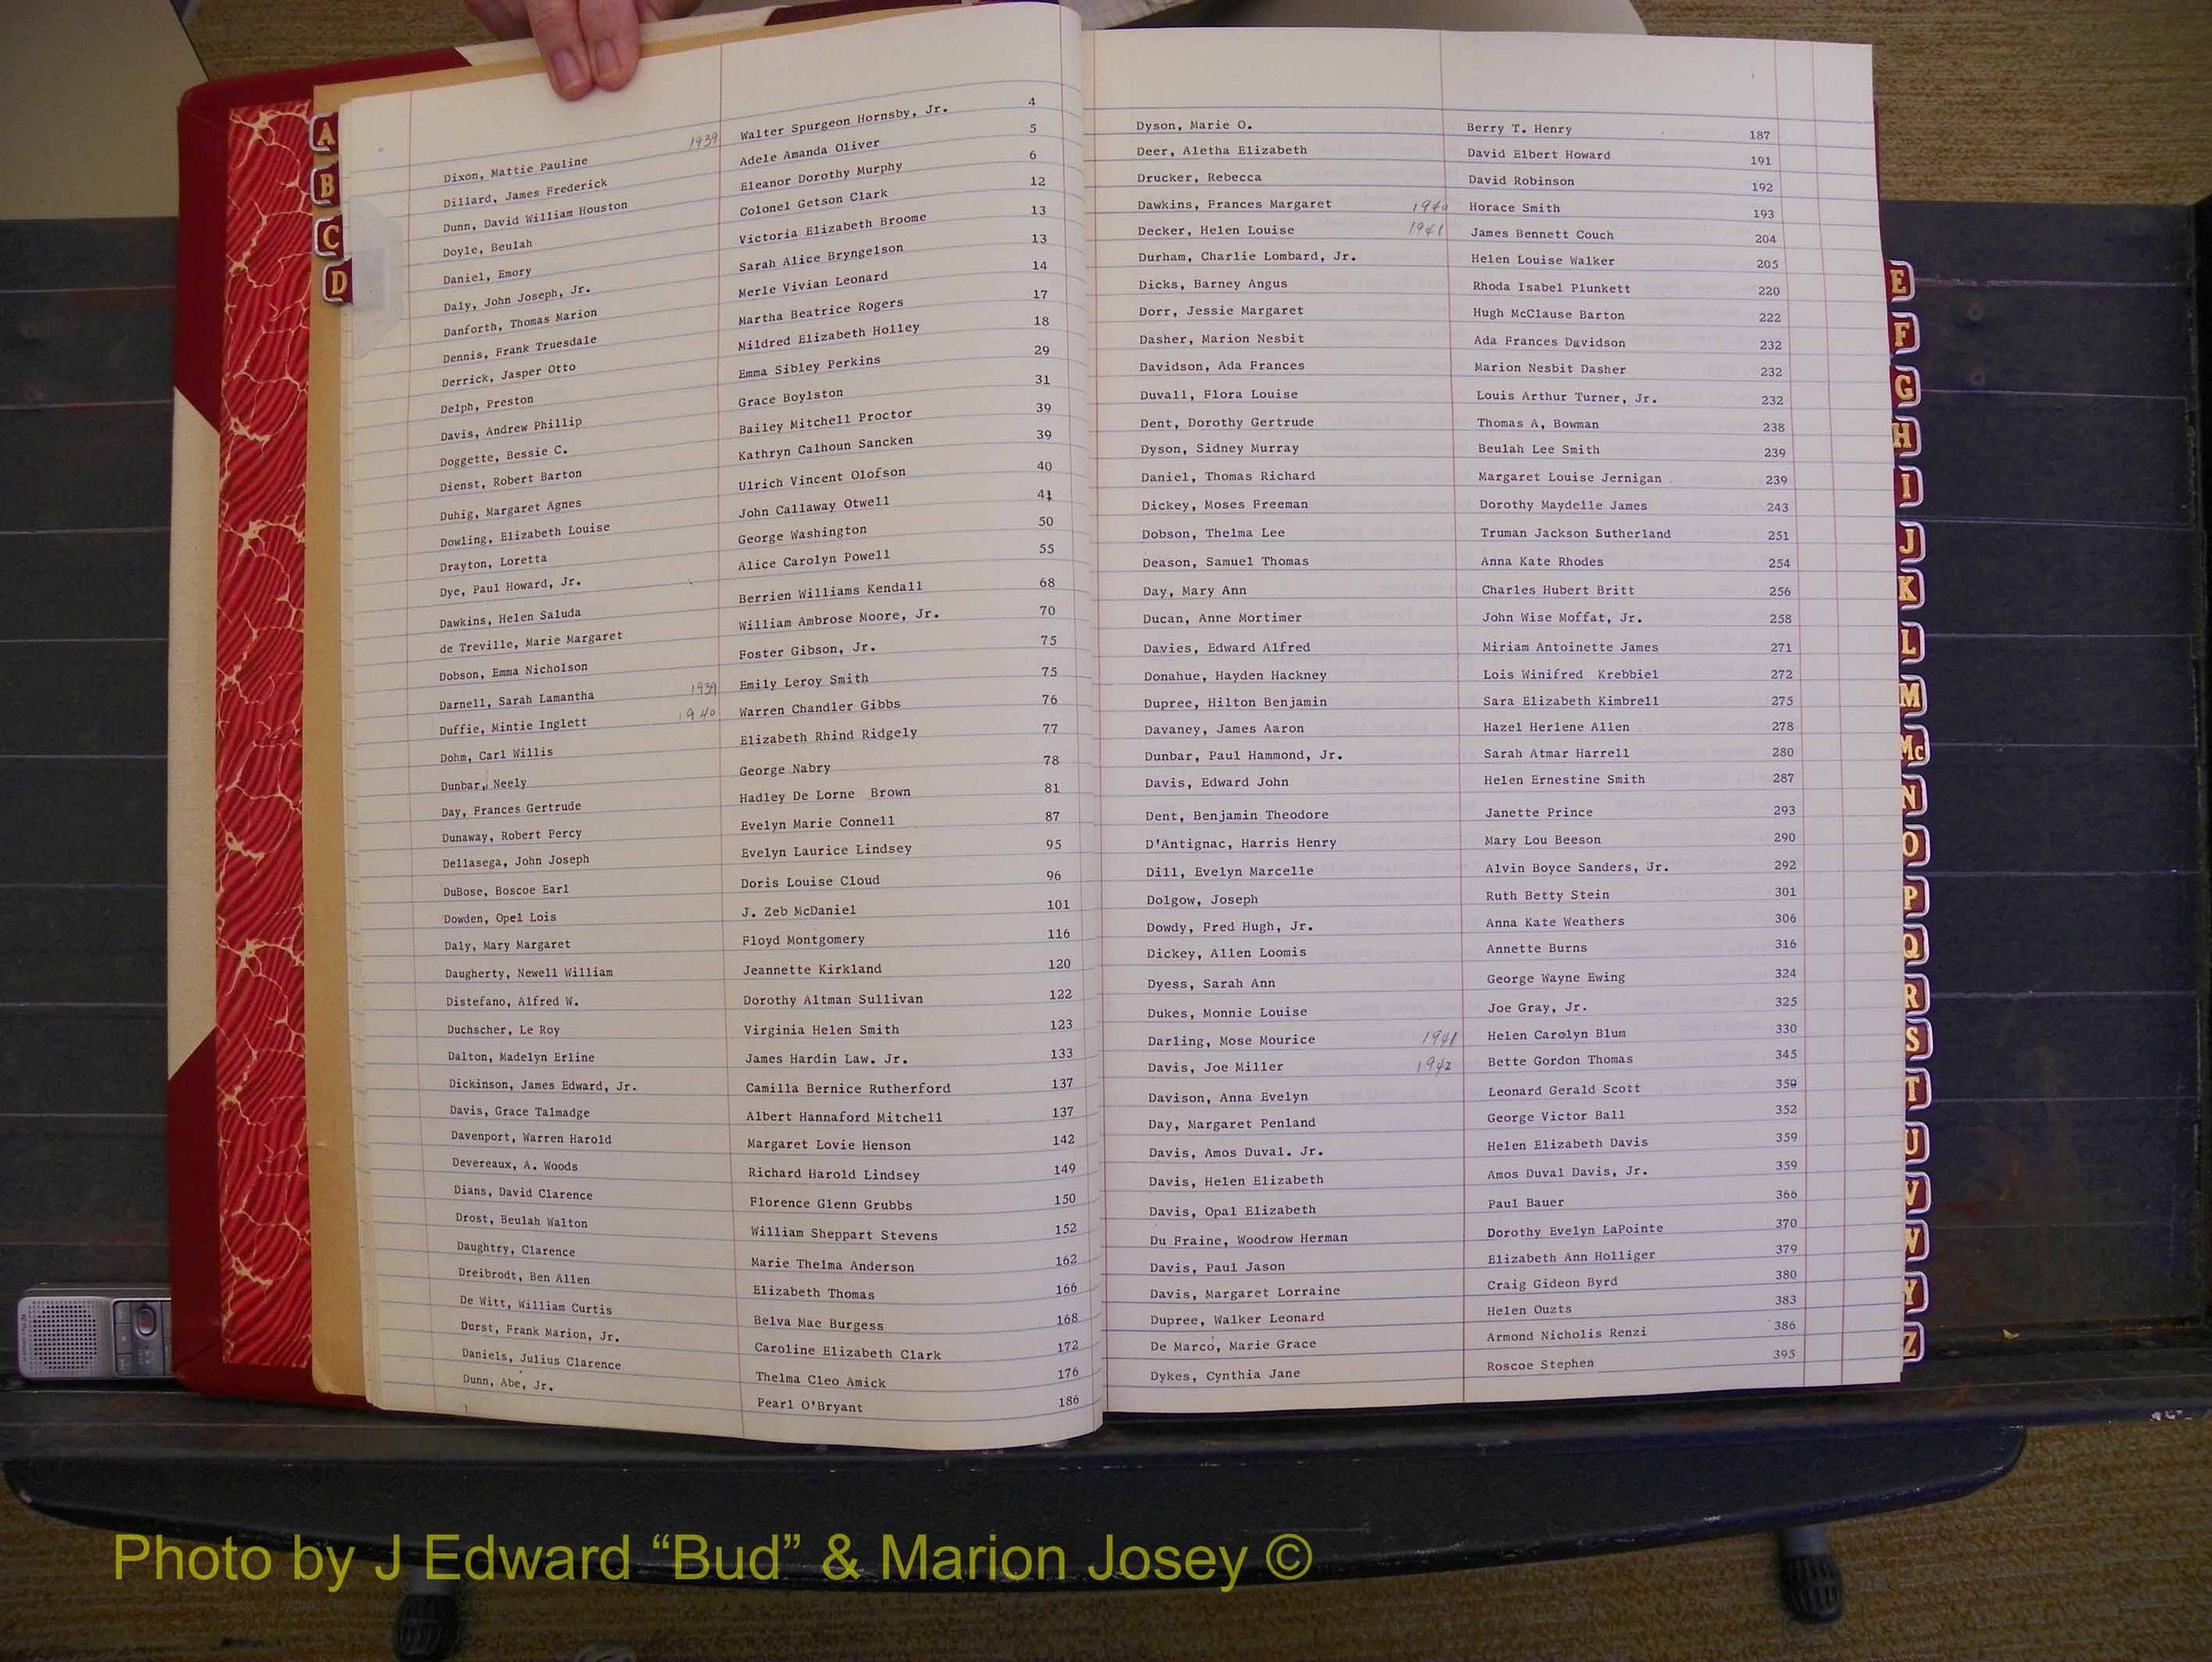 Dixon, Mattie Pauline 1939 Walter Spurgeon Hornsby, Jr. 4
Dillard, James Frederick Adele Amanda Oliver 5
Dunn, David William Houston Eleanor Dorothy Murphy 6
Doyle, Beulah Colonel Getson Clark 12
Daniel, Emory Victoria Elizabeth Broome 13
Daly, John Joseph, Jr. Sarah Alice Bryngelson 13
Danforth, Thomas Marion Merle Vivian Leonard 14
Dennis, Frank Truesdale Martha Beatrice Rogers 17
Derrick, Jasper Otto Mildred Elizabeth Holley 18
Delph, Preston Emma Sibley Perkins 29
Davis, Andrew Phillip Grace Boylston 31
Doggette, Bessie C. Bailey Mitchell Proctor 39
Dienst, Robert Barton Kathryn Calhoun Sancken 39
Duhig, Margaret Agnes Ulrich Vincent Olofson 40
Dowling, Elizabeth Louise John Callaway Otwell 41
Drayton, Loretta George Washington 50
Dye, Paul Howard, Jr. Alice Carolyn Powell 55
Dawkins, Helen Saluda Berrien Williams Kendall 68
de Treville, Marie Margaret William Ambrose Moore, Jr. 70
Dobson, Emma Nicholson Foster Gibson, Jr. 75
Darnell, Sarah Lamantha 1939 Emily Leroy Smith 75
Duffie, Mintie Inglett 1940 Warren Chandler Gibbs 76
Dohm, Carl Willis Elizabeth Rhind Ridgely 77
Dunbar, Neely George Nabry 78
Day, Frances Gertrude Hadley De Lorne Brown 81
Dunaway, Robert Percy Evelyn Marie Connell 87
Dellasega, John Joseph Evelyn Laurice Lindsey 95
DuBose, Boscoe Earl Doris Louise Cloud 96
Dowden, Opel Lois J. Zeb McDaniel 101
Daly, Mary Margaret Floyd Montgomery 116
Daugherty, Newell William Jeannette Kirkland 120
Distefano, Alfred W. Dorothy Altman Sullivan 122
Duchscher, Le Roy Virginia Helen Smith 123
Dalton, Madelyn Erline James Hardin Law. Jr. 133
Dickinson, James Edward, Jr. Camilla Bernice Rutherford 137
Davis, Grace Talmadge Albert Hannaford Mitchell 137
Davenport, Warren Harold Margaret Lovie Henson 142
Devereaux, A. Woods Richard Harold Lindsey 149
Dians, David Clarence Florence Glenn Grubbs 150
Drost, Beulah Walton William Sheppart Stevens 152
Daughtry, Clarence Marie Thelma Anderson 162
Dreibrodt, Ben Allen Elizabeth Thomas 166
De Witt, William Curtis Belva Mae Burgess 168
Durst, Frank Marion, Jr. Caroline Elizabeth Clark 172
Daniels, Julius Clarence Thelma Cleo Amick 176
Dunn, Abe, Jr. Pearl O'Bryant 186
Dyson, Marie O. Berry T. Henry 187
Deer, Aletha Elizabeth David Elbert Howard 191
Drucker, Rebecca David Robinson 192
Dawkins, Frances Margaret 1940 Horace Smith 193
Decker, Helen Louise 1941 James Bennett Couch 204
Durham, Charlie Lombard, Jr. Helen Louise Walker 205
Dicks, Barney Angus Rhoda Isabel Plunkett 220
Dorr, Jessie Margaret Hugh McClause Barton 222
Dasher, Marion Nesbit Ada Frances Davidson 232
Davidson, Ada Frances Marion Nesbit Dasher 232
Duvall, Flora Louise Louis Arthur Turner, Jr. 232
Dent, Dorothy Gertrude Thomas A, Bowman 238
Dyson, Sidney Murray Beulah Lee Smith 239
Daniel, Thomas Richard Margaret Louise Jernigan 239
Dickey, Moses Freeman Dorothy Maydelle James 243
Dobson, Thelma Lee Truman Jackson Sutherland 251
Deason, Samuel Thomas Anna Kate Rhodes 254
Day, Mary Ann Charles Hubert Britt 256
Ducan, Anne Mortimer John Wise Moffat, Jr. 258
Davies, Edward Alfred Miriam Antoinette James 271
Donahue, Hayden Hackney Lois Winifred Krebbiel 272
Dupree, Hilton Benjamin Sara Elizabeth Kimbrell 275
Davaney, James Aaron Hazel Herlene Allen 278
Dunbar, Paul Hammond, Jr. Sarah Atmar Harrell 280
Davis, Edward John Helen Ernestine Smith 287
Dent, Benjamin Theodore Janette Prince 293
D'Antignac, Harris Henry Mary Lou Beeson 290
Dill, Evelyn Marcelle Alvin Boyce Sanders, Jr. 292
Dolgow, Joseph Ruth Betty Stein 301
Dowdy, Fred Hugh, Jr. Anna Kate Weathers 306
Dickey, Allen Loomis Annette Burns 316
Dyess, Sarah Ann George Wayne Ewing 324
Dukes, Monnie Louise Joe Gray, Jr. 325
Darling, Mose Mourice 1941 Helen Carolyn Blum 330
Davis, Joe Miller 1942 Bette Gordon Thomas 345
Davison, Anna Evelyn Leonard Gerald Scott 350
Day, Margaret Penland George Victor Ball 352
Davis, Amos Duval. Jr. Helen Elizabeth Davis 359
Davis, Helen Elizabeth Amos Duval Davis, Jr. 359
Davis, Opal Elizabeth Paul Bauer 366
Du Fraine, Woodrow Herman Dorothy Evelyn LaPointe 370
Davis, Paul Jason Elizabeth Ann Holliger 379
Davis, Margaret Lorraine Craig Gideon Byrd 380
Dupree, Walker Leonard Helen Ouzts 383
De Marco, Marie Grace Armond Nicholis Renzi 386
Dykes, Cynthia Jane Roscoe Stephen 395
A
B
C
D
E
F
G
H
I
J
K
L
M
Mc
N
O
P
Q
R
S
T
U
V
W
Y
Z
Photo by J Edward “Bud” & Marion Josey ©